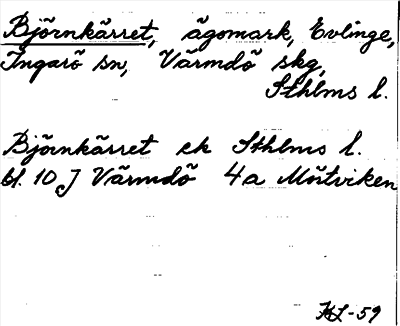 Björnkärret, ägomark, Evlinge,
Ingarö sn, Värmdö skg,
Sthlms l.
Björnkärret ek Sthlms l.
bl. 10 J Värmdö 4a Mörtviken
KL-59